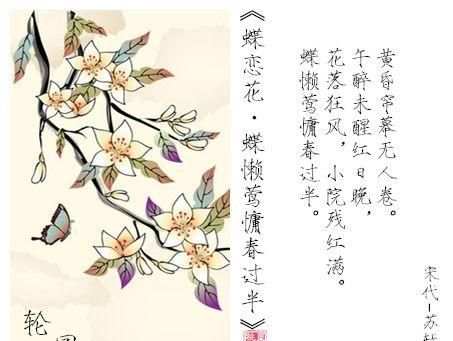 《蝶恋花·蝶懒莺慵春过半》
蝶懒莺慵春过半。
花落狂风，小院残红满。
午醉未醒红日晚，
黄昏帘幕无人卷。
宋代-苏
轮